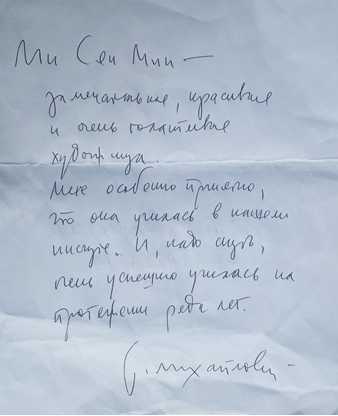 Ми Сен Мин —
замечательная, красивая
и очень талантливая
художница.
Мне особенно приятно,
что она училась в нашем
институте. И, надо сказать,
очень успешно училась на
протяжении ряда лет.
С. Михайлов